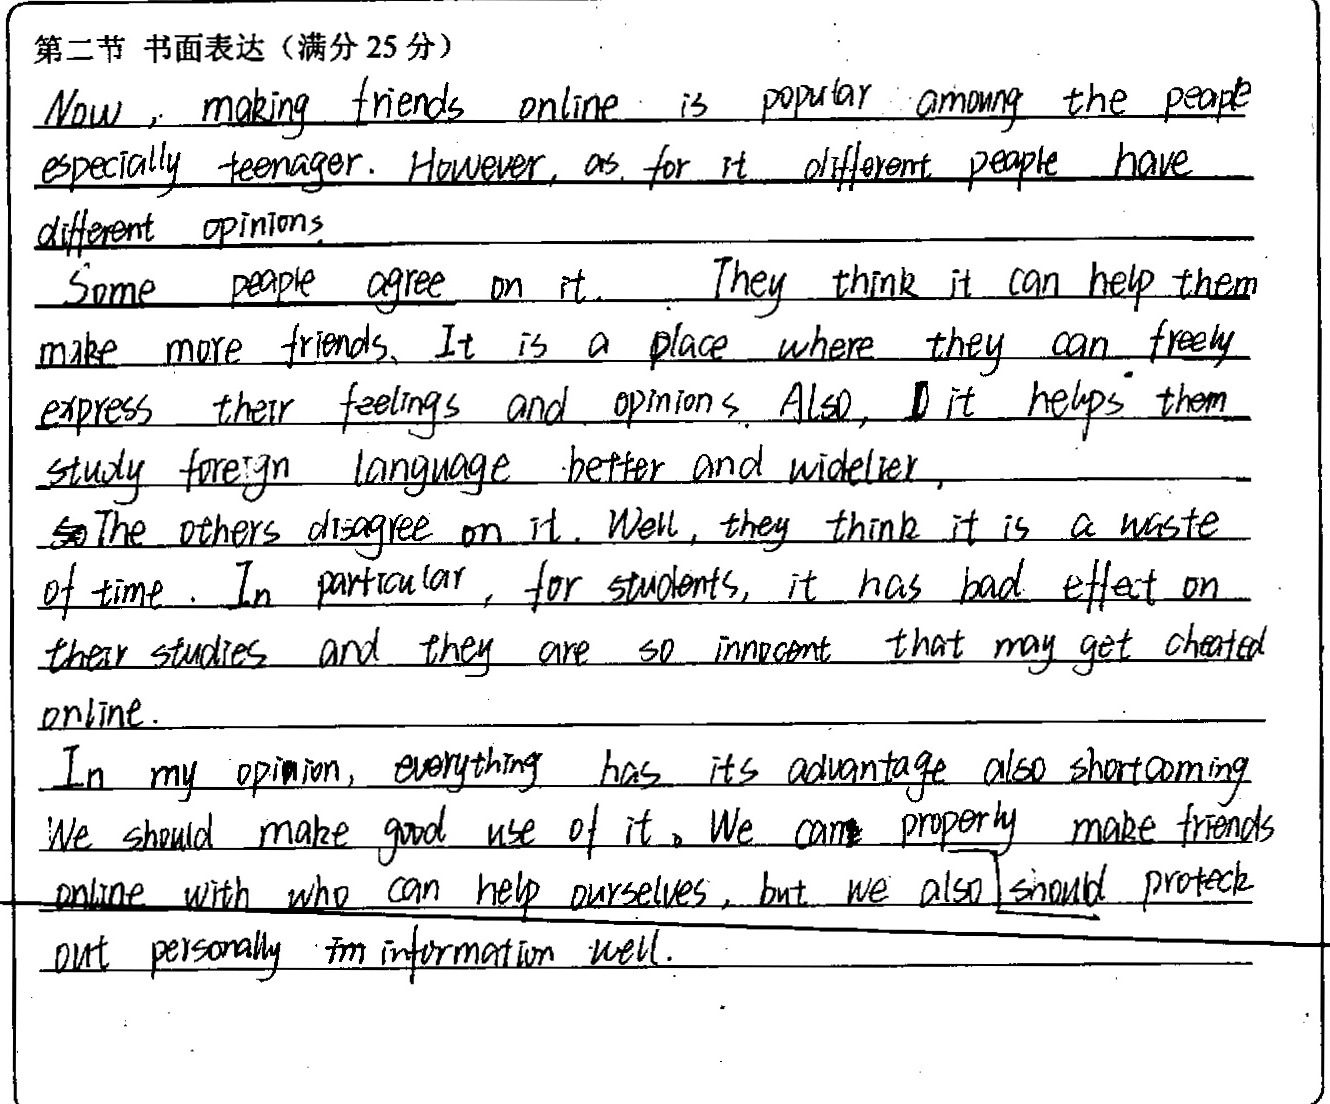 第二节 书面表达（满分 25 分）
Now, making friends online is popular amoung the peaple
especially teenager. However, as for it different peaple have
different opinions.
Some peaple agree on it. They think it can help them
make more friends. It is a place where they can freely
express their feelings and opinions. Also, it helps them
study foreign language better and widelier.
The others disagree on it. Well, they think it is a waste
of time. In particular, for students, it has bad effect on
their studies and they are so innocent that may get cheated
online.
In my opinion, everything has its advantage also shortcoming
We should make good use of it. We can properly make friends
online with who can help ourselves, but we also should proteck
out personally information well.